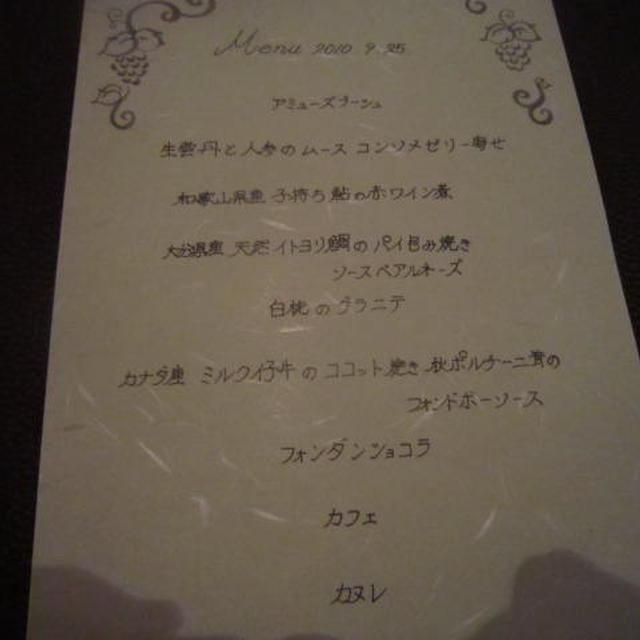 Menu 2010 9.25
アミューズブーシュ
生雲丹と人参のムース コンソメゼリー寄せ
和歌山県産 子持ち鮎の赤ワイン煮
大分県産 天然イトヨリ鯛のパイ包み焼き
ソースベアルネーズ
白桃のグラニテ
カナダ産 ミルク仔牛のココット焼き 秋ポルチーニ茸の
フォンドボーソース
フォンダンショコラ
カフェ
カヌレ